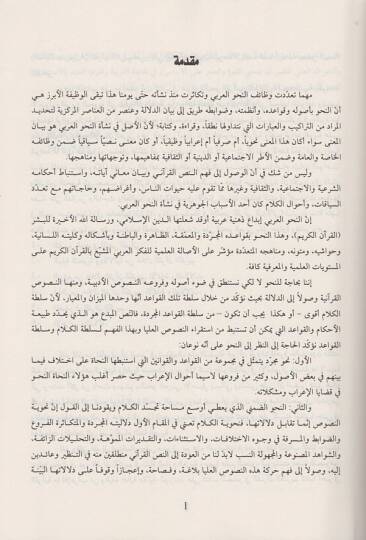 مقدمة
مهما تعدّدت وظائف النحو العربي وتكاثرت منذ نشأته حتّى يومنا هذا تبقى الوظيفة الأبرز هـي
أنّ النحو بأصوله وقواعده، وأنظمته، وضوابطه طريق إلى بيان الدلالة وعنصر من العناصر المركزية لتحديد
المراد من التراكيب والعبارات التي نتداولها نطقاً، وقراءة، وكتابة؛ لأنّ الأصل في نشأة النحو العربي هو بيـان
المعنى سواء أكان هذا المعنى نحوياً، أم صرفياً أم إعرابياً وظيفياً، أو كان معنى نصيّاً سياقياً ضمن وظائفه
الخاصة والعامة وضمن الأطر الاجتماعية أو الدينية أو الثقافية بمفاهيمها، وتوجهاتها ومناهجها.
وليس من شك في أن الوصول إلى فهم النـص القرآنـي وبيـان معانـي آياتـه، واستنباط أحكامـه
الشرعية والاجتماعية، والثقافية وغيرها ممّا تقوم عليه حيوات الناس، وأغراضهـم، وحاجاتـهم مع تعـدّد
السياقات، وأحوال الكلام كان أحد الأسباب الجوهرية في نشأة النحو العربي.
إنّ النحو العربي إبداع ذهنية عربية أوقد شعلتها الديـن الإسلامي، ورسالة الله الأخيـرة للبشـر
(القرآن الكريم)، وهذا النحـو بقواعـده المجرّدة والمعمّقـة، الظاهرة والباطنة وبأشكاله وكليته اللسانية،
وحواشيه، ومتونه، ومناهجه المتعدّدة مؤشّر على الأصالة العلمية للفكر العربي المشبّع بالقرآن الكريم على
المستويات العلمية والمعرفية كافة.
إننا بحاجة للنحو لا لكي نستنطق في ضوء أصوله وفروعـه النصـوص الأدبيـة، ومنهـا النصـوص
القرآنية وصولاً إلى الدلالة بحيث نؤكّد من خلال سلطة تلك القواعد أنّها وحدها الميزان والمعيار، لأنّ سلطة
الكلام أقوى – أو هكذا يجب أن تكون – من سلطة القواعد المجردة، فالنص المبدع هو الـذي يحدّد طبيعة
الأحكام والقواعد التي يمكن أن تستنبط من استقراء النصوص العليا وبهذا الفهـم لـسلطة الكـلام وسـلطة
القواعد تؤكّد الحاجة إلى النظر إلى النحو على أنّه نوعان:
الأول: نحو مجرّد يتمثّل في مجموعة من القواعد والقوانين التي استنبطها النحاة على اختلاف فيما
بينهم في بعض الأصول، وكثير من فروعها لاسيما أحوال الإعراب حيث حصر أغلب هؤلاء النحاة النحـو
في قضايا الإعراب ومشكلاته.
والثاني: النحو الضمني الذي يعطي أوسـع مساحة تجسّـد الكـلام ويقودنـا إلى القـول إنّ نحويـة
النصوص إنّمـا تقابـل دلالاتـهـا، فنحويـة الكـلام تعني في المقـام الأول دلاليته المجردة والمتكاثرة الفروع
والضوابط والمسرفة في وجـوه الاختلافـات، والاستثناءات، والتقديـرات المموّهـة، والتحليـلات الزائفـة،
والشواهد المصنوعة والمجهولة النسب لابدّ لنـا من العودة إلى النص القرآني منطلقين منه في التنظير وعائـديـن
إليه، وصولاً إلى فهم حركة هذه النصـوص العليا بلاغة، وفصاحة، وإعجازاً وقوفـاً علـى دلالاتـها البيّنة
أ